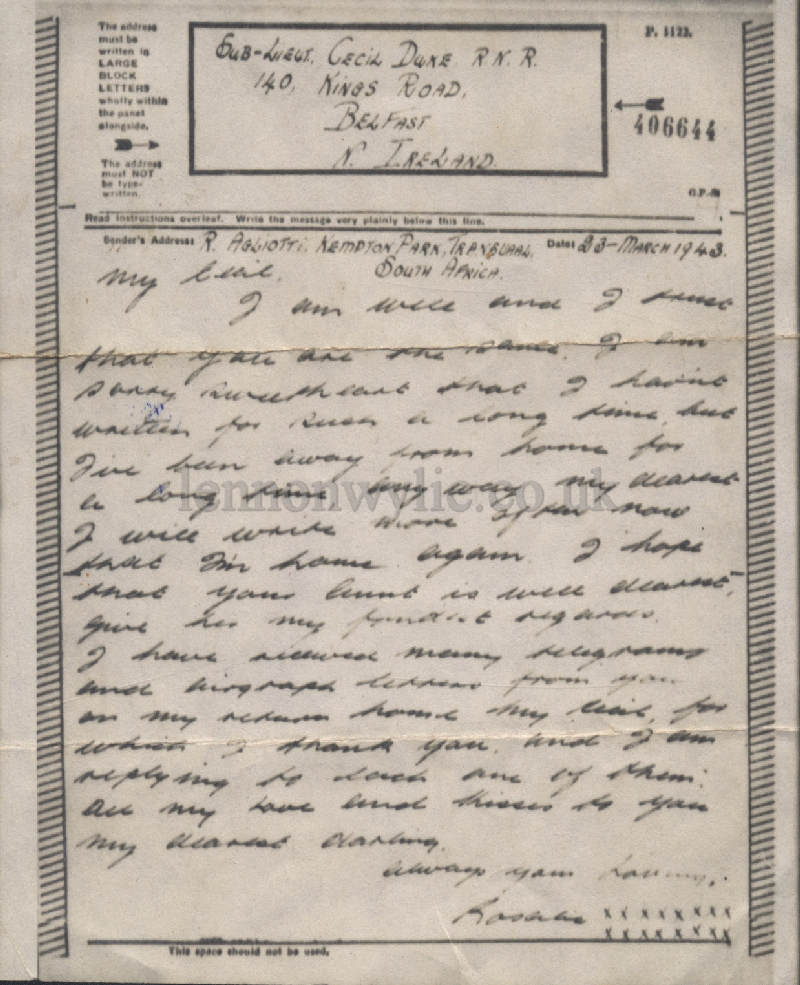 The address
must be
written in
LARGE
BLOCK
LETTERS
wholly within
the panel
alongside.
The address
must NOT
be type-
written.
SUB-LIEUT. CECIL DUKE. R.N.R.
140, KINGS ROAD,
BELFAST
N. IRELAND.
P. 1122.
406644
Read instructions overleaf. Write the message very plainly below this line.
Sender's Address: R. AGLIOTTI, KEMPTON PARK, TRANSVAAL, Date: 23-MARCH 1943.
SOUTH AFRICA.
My
I am well and I trust
that you are the same. I am
sorry sweetheart that I havnt
written for such a long time, but
I've been away from home for
a long time, any way my dearest
I will write more often now
that I'm home again. I hope
that your Aunt is well dearest,
give her my fondest regards.
I have received many telegrams
and airgraph letters from you
on my return home my, for
which I thank you, and I am
replying to each one of them.
All my love and kisses to you
my dearest darling.
Always your loving,
Rosalie x x x x x x x
x x x x x x x
This space should not be used.
lennonwylie.co.uk